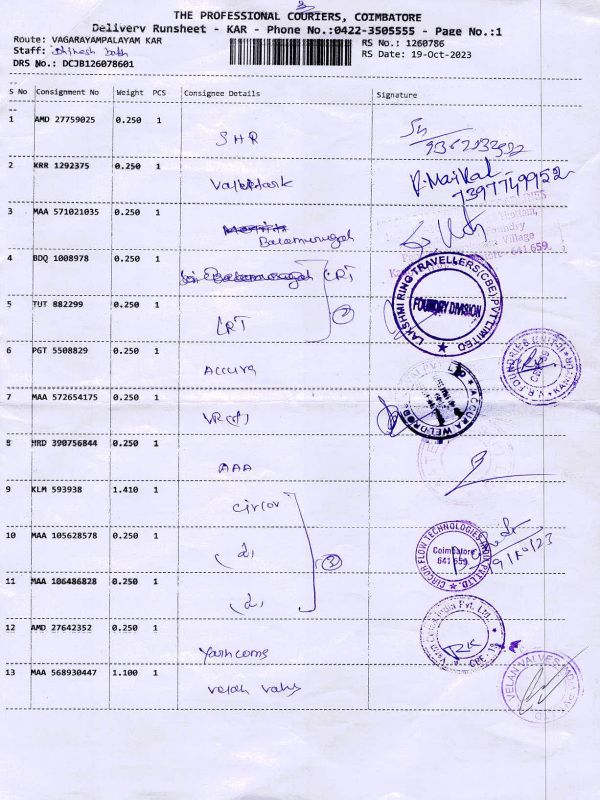 THE PROFESSIONAL COURIERS, COIMBATORE
Delivery Runsheet - KAR - Phone No.:0422-3505555 - Page No.:1
Route: VAGARAYAMPALAYAM KAR
RS No.: 1260786
Staff:
RS Date: 19-Oct-2023
DRS No.: DCJB126078601
S No Consignment No Weight PCS Consignee Details Signature
1 AMD 27759025 0.250 1
SHR
2 KRR 1292375 0.250 1
R. Maikal
7397749952
3 MAA 571021035 0.250 1
Balamurugan
641 659
4 BDQ 1008978 0.250 1
CRT
LAKSHMI RING TRAVELLERS(CBE)PVT LIMITED
FOUNDRY DIVISION
5 TUT 882299 0.250 1
LRT 2
6 PGT 5508829 0.250 1
Accura
7 MAA 572654175 0.250 1
ACCURA WELDROD
8 HRD 390756844 0.250 1
AAA
9 KLM 593938 1.410 1
Circor
10 MAA 105628578 0.250 1
(2) 3
CIRCOR FLOW TECHNOLOGIES INDIA PVT LTD.
Coimbatore
641 659
11 MAA 106486828 0.250 1
(2)
12 AMD 27642352 0.250 1
13 MAA 568930447 1.100 1
Velan Valves
VELAN VALVES INDIA PVT LTD